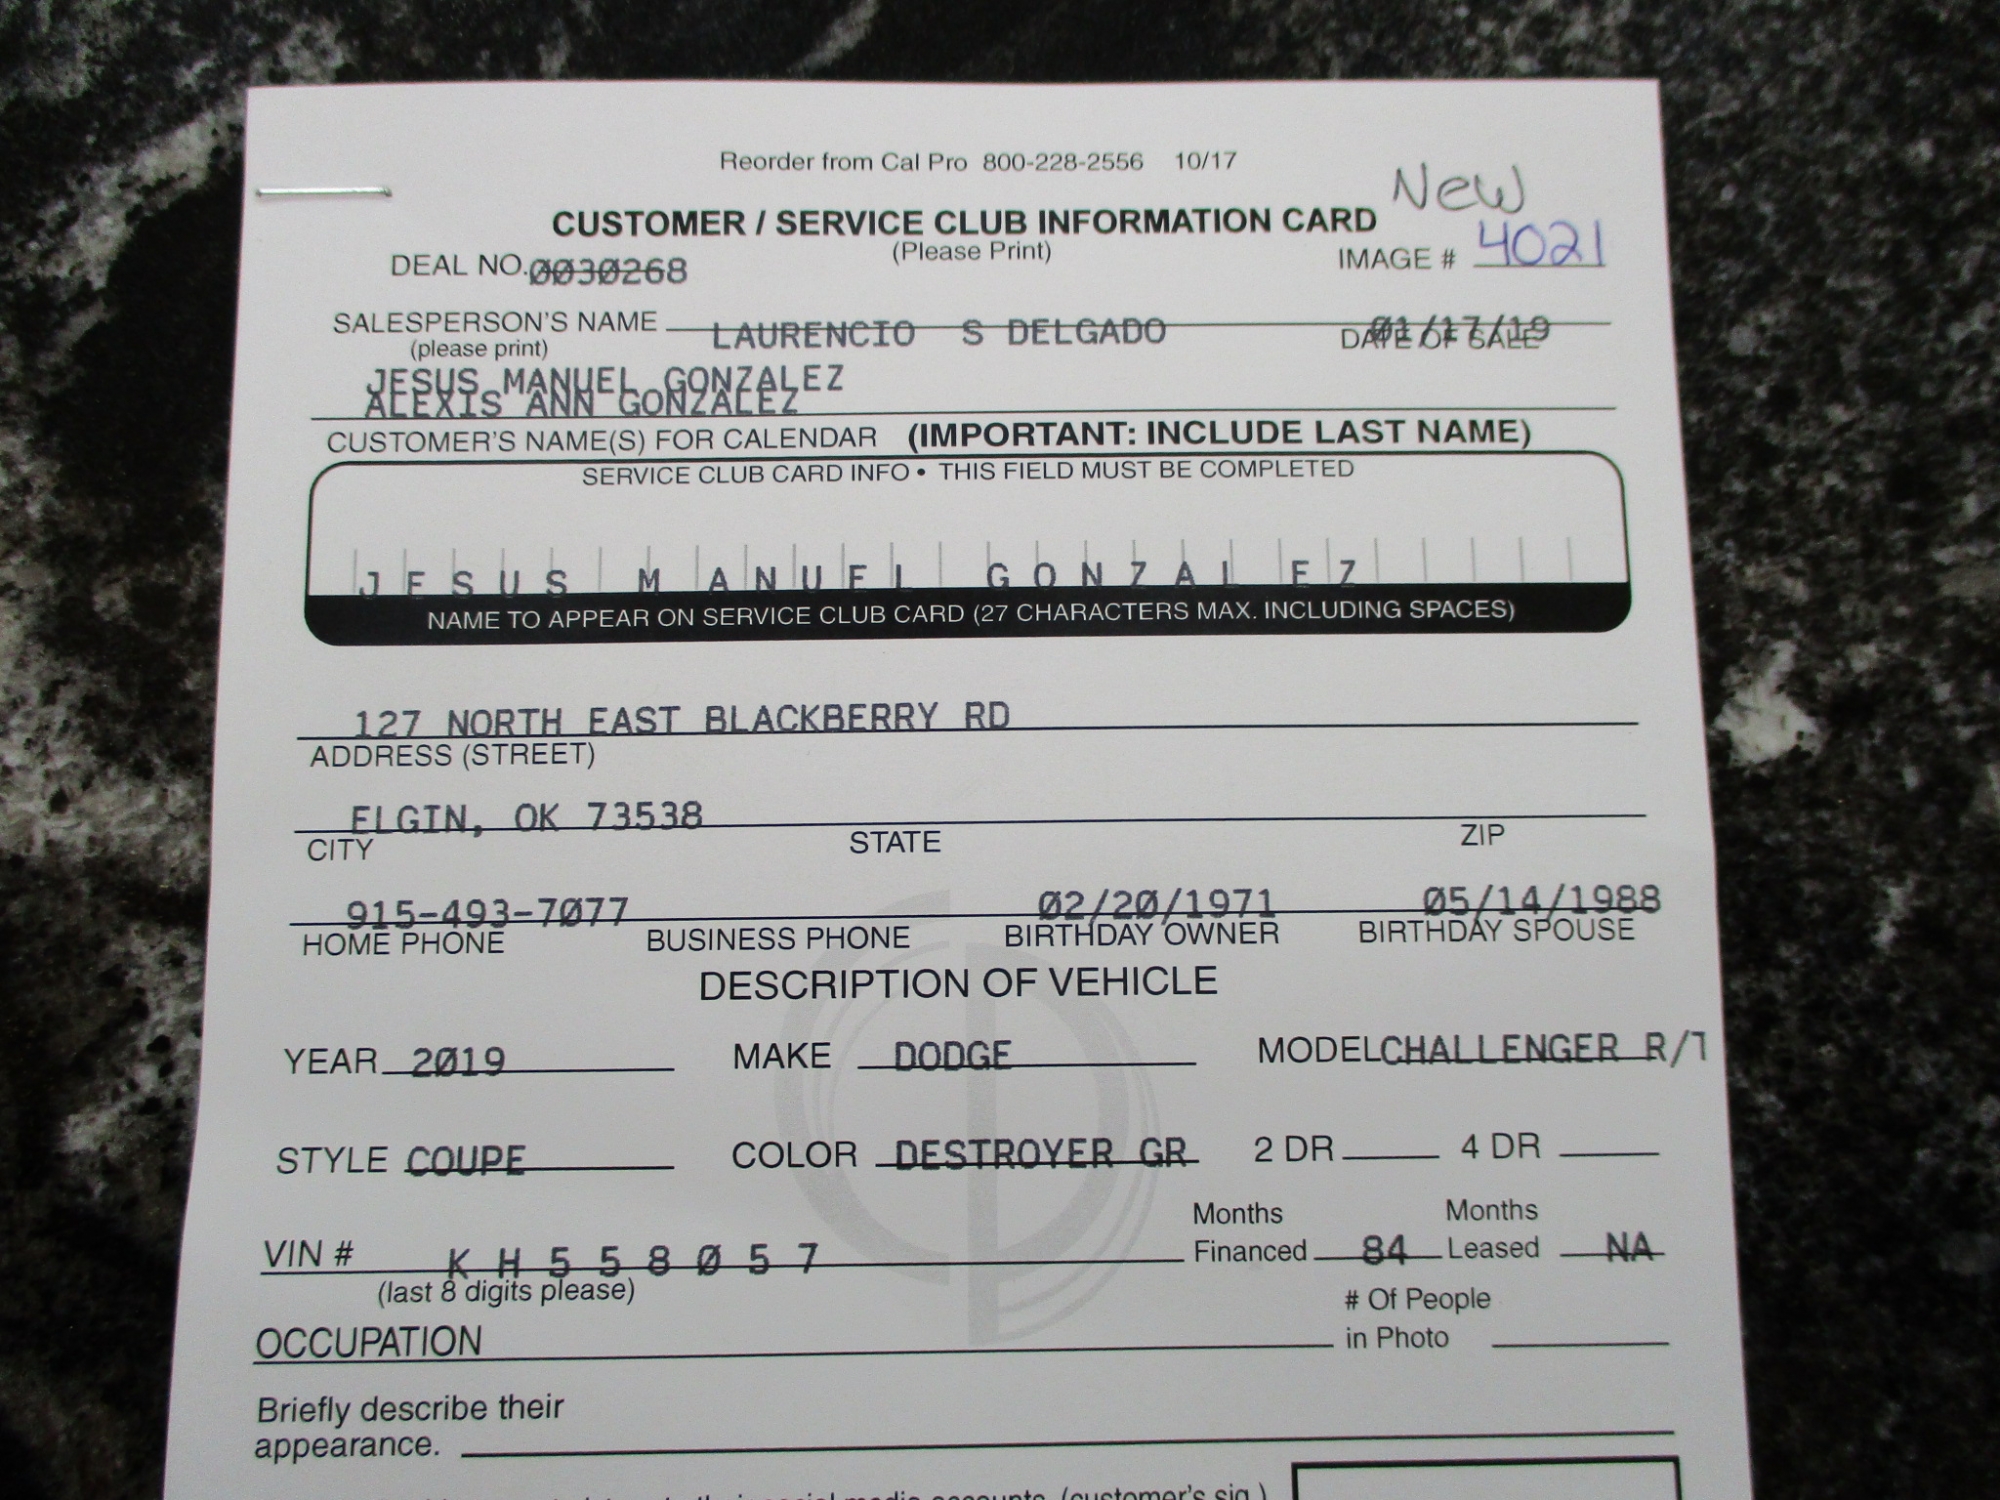 Reorder from Cal Pro 800-228-2556 10/17
New
CUSTOMER / SERVICE CLUB INFORMATION CARD
(Please Print)
DEAL NO. 0030268
IMAGE # 4021
SALESPERSON'S NAME LAURENCIO S DELGADO
(please print)
01/17/19
DATE OF SALE
JESUS MANUEL GONZALEZ
ALEXIS ANN GONZALEZ
CUSTOMER'S NAME(S) FOR CALENDAR (IMPORTANT: INCLUDE LAST NAME)
SERVICE CLUB CARD INFO • THIS FIELD MUST BE COMPLETED
JESUS MANUEL GONZALEZ
NAME TO APPEAR ON SERVICE CLUB CARD (27 CHARACTERS MAX. INCLUDING SPACES)
127 NORTH EAST BLACKBERRY RD
ADDRESS (STREET)
ELGIN, OK 73538
CITY STATE ZIP
915-493-7077 02/20/1971 05/14/1988
HOME PHONE BUSINESS PHONE BIRTHDAY OWNER BIRTHDAY SPOUSE
DESCRIPTION OF VEHICLE
YEAR 2019 MAKE DODGE MODEL CHALLENGER R/T
STYLE COUPE COLOR DESTROYER GR 2 DR 4 DR
Months Months
VIN # KH558057 Financed 84 Leased NA
(last 8 digits please)
# Of People
OCCUPATION in Photo
Briefly describe their
appearance.
social media accounts. (customer's sig.)